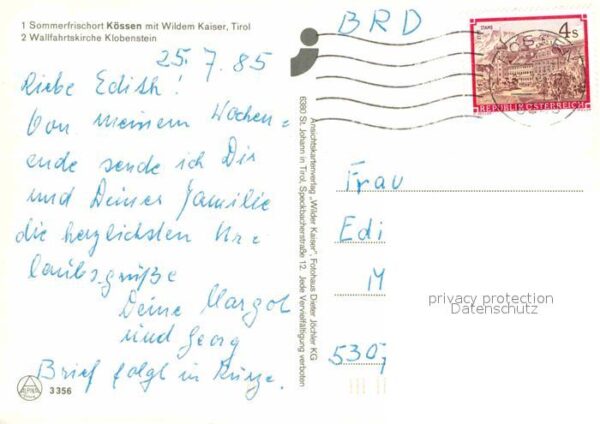 1 Sommerfrischort Kössen mit Wildem Kaiser, Tirol
2 Wallfahrtskirche Klobenstein
25. 7. 85
Liebe Edith!
Von meinem Wochen=
ende sende ich Dir
und Deiner Familie
die herzlichsten Ur=
laubsgrüße
Deine Margot
und Georg
Brief folgt in Kürze.
ALPINA
3356
Ansichtskartenverlag „Wilder Kaiser", Fotohaus Dieter Jöchler KG
6380 St. Johann in Tirol, Speckbacherstraße 12. Jede Vervielfältigung verboten
BRD
STAMS
4 S
REPUBLIK ÖSTERREICH
Frau
Edi
M
5307
privacy protection
Datenschutz